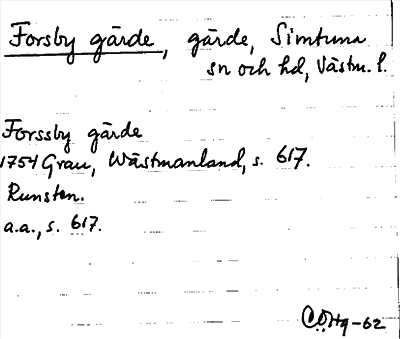 Forsby gärde, gärde, Simtuna
sn och hd, Västm. l.
Forssby gärde
1754 Grau, Wästmanland, s. 617.
Runsten.
a.a., s. 617.
CÖHg-62